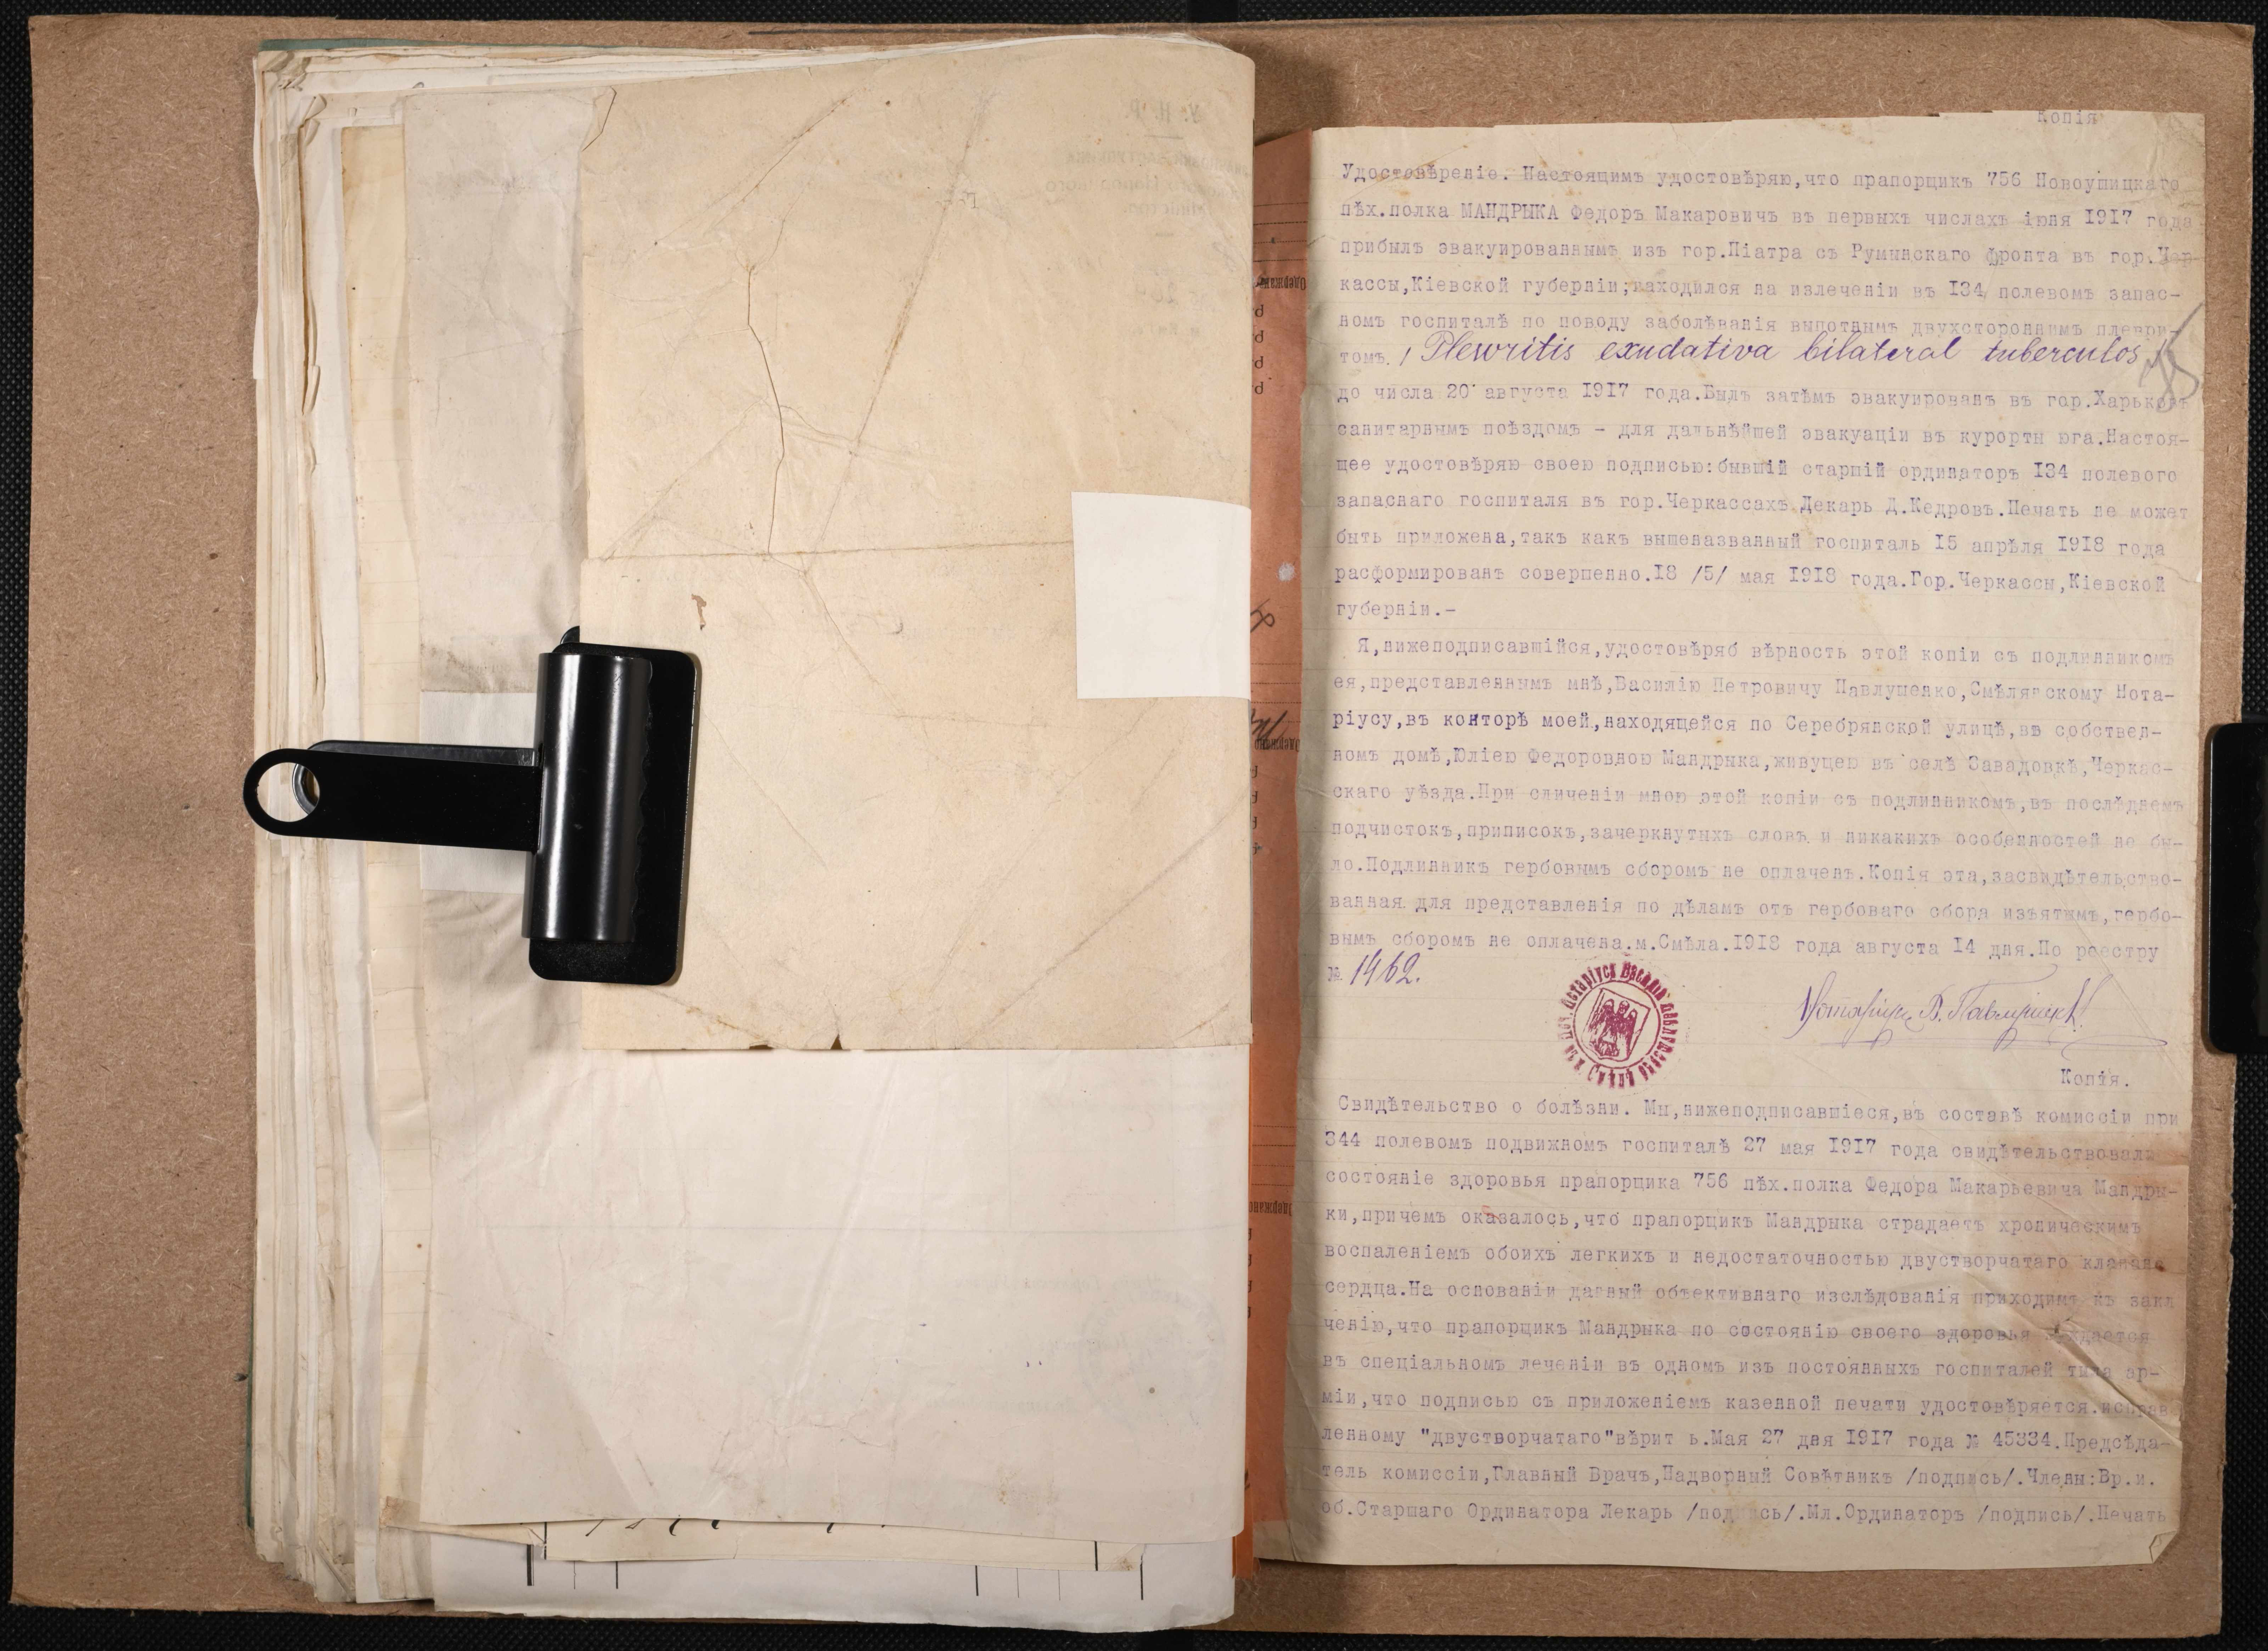 Копія
Удостовѣреніе. Настоящимъ удостовѣряю,что прапорщикъ 756 Новоушицкаго
пѣх.полка МАНДРЫКА Федоръ Макаровичъ въ первыхъ числахъ іюня 1917 года
прибылъ эвакуированнымъ изъ гор.Піатра съ Румынскаго фронта въ гор.Чер-
кассы,Кіевской губерніи;находился на излеченіи въ 134 полевомъ запас-
номъ госпиталѣ по поводу заболѣванія выпотнымъ двухстороннимъ плеври-
томъ. / Plewritis exudativa bilateral tuberculos /
до числа 20 августа 1917 года.Былъ затѣмъ эвакуированъ въ гор.Харьковъ
санитарнымъ поѣздомъ - для дальнѣйшей эвакуаціи въ курорты юга.Настоя-
щее удостовѣряю своею подписью:бывшій старшій ординаторъ 134 полевого
запаснаго госпиталя въ гор.Черкассахъ Лекарь Д.Кедровъ.Печать не может
быть приложена,такъ какъ вышеназванный госпиталь 15 апрѣля 1918 года
расформированъ совершенно.18 /5/ мая 1918 года.Гор.Черкассы,Кіевской
губерніи.-
Я,нижеподписавшійся,удостовѣряб вѣрность этой копіи съ подлинникомъ
ея,представленнымъ мнѣ,Василію Петровичу Павлушенко,Смѣлянскому Нота-
ріусу,въ конторѣ моей,находящейся по Серебрянской улицѣ,въ собствен-
номъ домѣ,Юліею Федоровною Мандрыка,живущею въ селѣ Савадовкѣ,Черкас-
скаго уѣзда.При сличеніи мною этой копіи съ подлинникомъ,въ послѣднемъ
подчистокъ,приписокъ,зачеркнутыхъ словъ и никакихъ особенностей не бы-
ло.Подлинникъ гербовымъ сборомъ не оплаченъ.Копія эта,засвидѣтельство-
ванная для представленія по дѣламъ отъ гербоваго сбора изъятымъ,гербо-
вымъ сборомъ не оплачена.м.Смѣла.1918 года августа 14 дня.По реестру
№ 1962.
Нотаріусъ В. Павлушенко
Копія.
Свидѣтельство о болѣзни. Мы,нижеподписавшіеся,въ составѣ комиссіи при
344 полевомъ подвижномъ госпиталѣ 27 мая 1917 года свидѣтельствовали
состояніе здоровья прапорщика 756 пѣх.полка Федора Макарьевича Мандры-
ки,причемъ оказалось,что прапорщикъ Мандрыка страдаетъ хроническимъ
воспаленіемъ обоихъ легкихъ и недостаточностью двустворчатаго клапана
сердца.На основаніи данный объективнаго изслѣдованія приходимъ къ закл
ченію,что прапорщикъ Мандрыка по состоянію своего здоровья нуждается
въ спеціальномъ леченіи въ одномъ изъ постоянныхъ госпиталей тыла ар-
міи,что подписью съ приложеніемъ казенной печати удостовѣряется.исправ
ленному "двустворчатаго"вѣрит ь.Мая 27 дня 1917 года № 45334.Предсѣда-
тель комиссіи,Главный Врачъ,Надворный Совѣтникъ /подпись/.Члены:Вр.и.
об.Старшаго Ординатора Лекарь /подпись/.Мл.Ординаторъ /подпись/.Печать